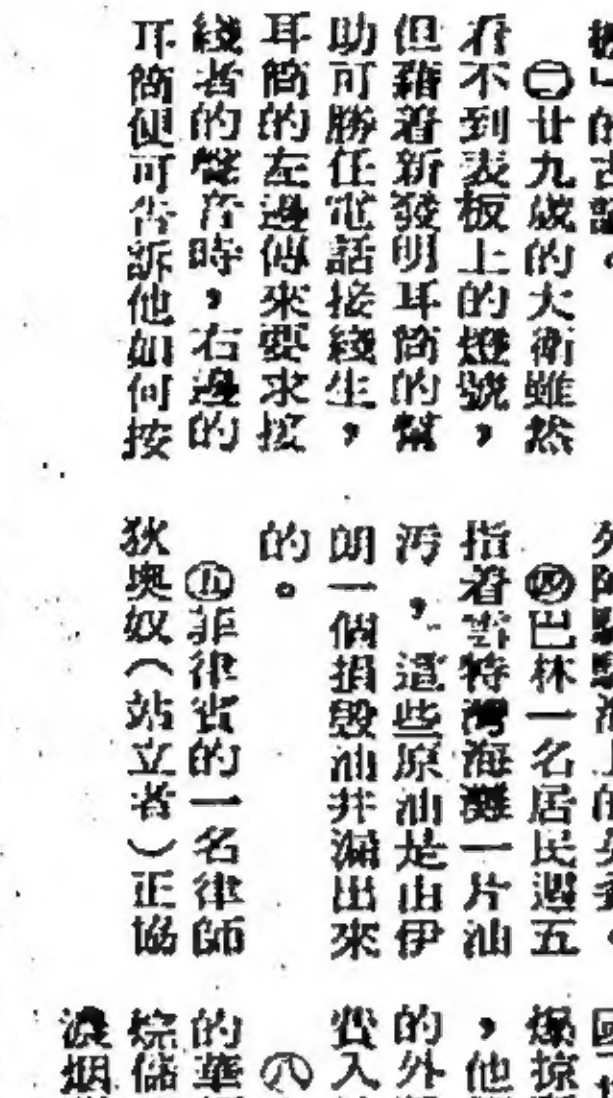 ㊁廿九歲的大衛雖然
看不到表板上的燈號，
但藉着新發明耳筒的幫
助可勝任電話接綫生，
耳筒的左邊傳來要求接
綫者的聲音時，右邊的
耳筒便可告訴他如何按
㊃巴林一名居民遇五
指着 特灣海灘一片油
污，這些原油是由伊
朗一個損毀油井漏出來
的。
㊄菲律賓的一名律師
狄奧奴（站立者）正協
爆掠
，他
的外
入
㊇
的華
烷儲
濃烟